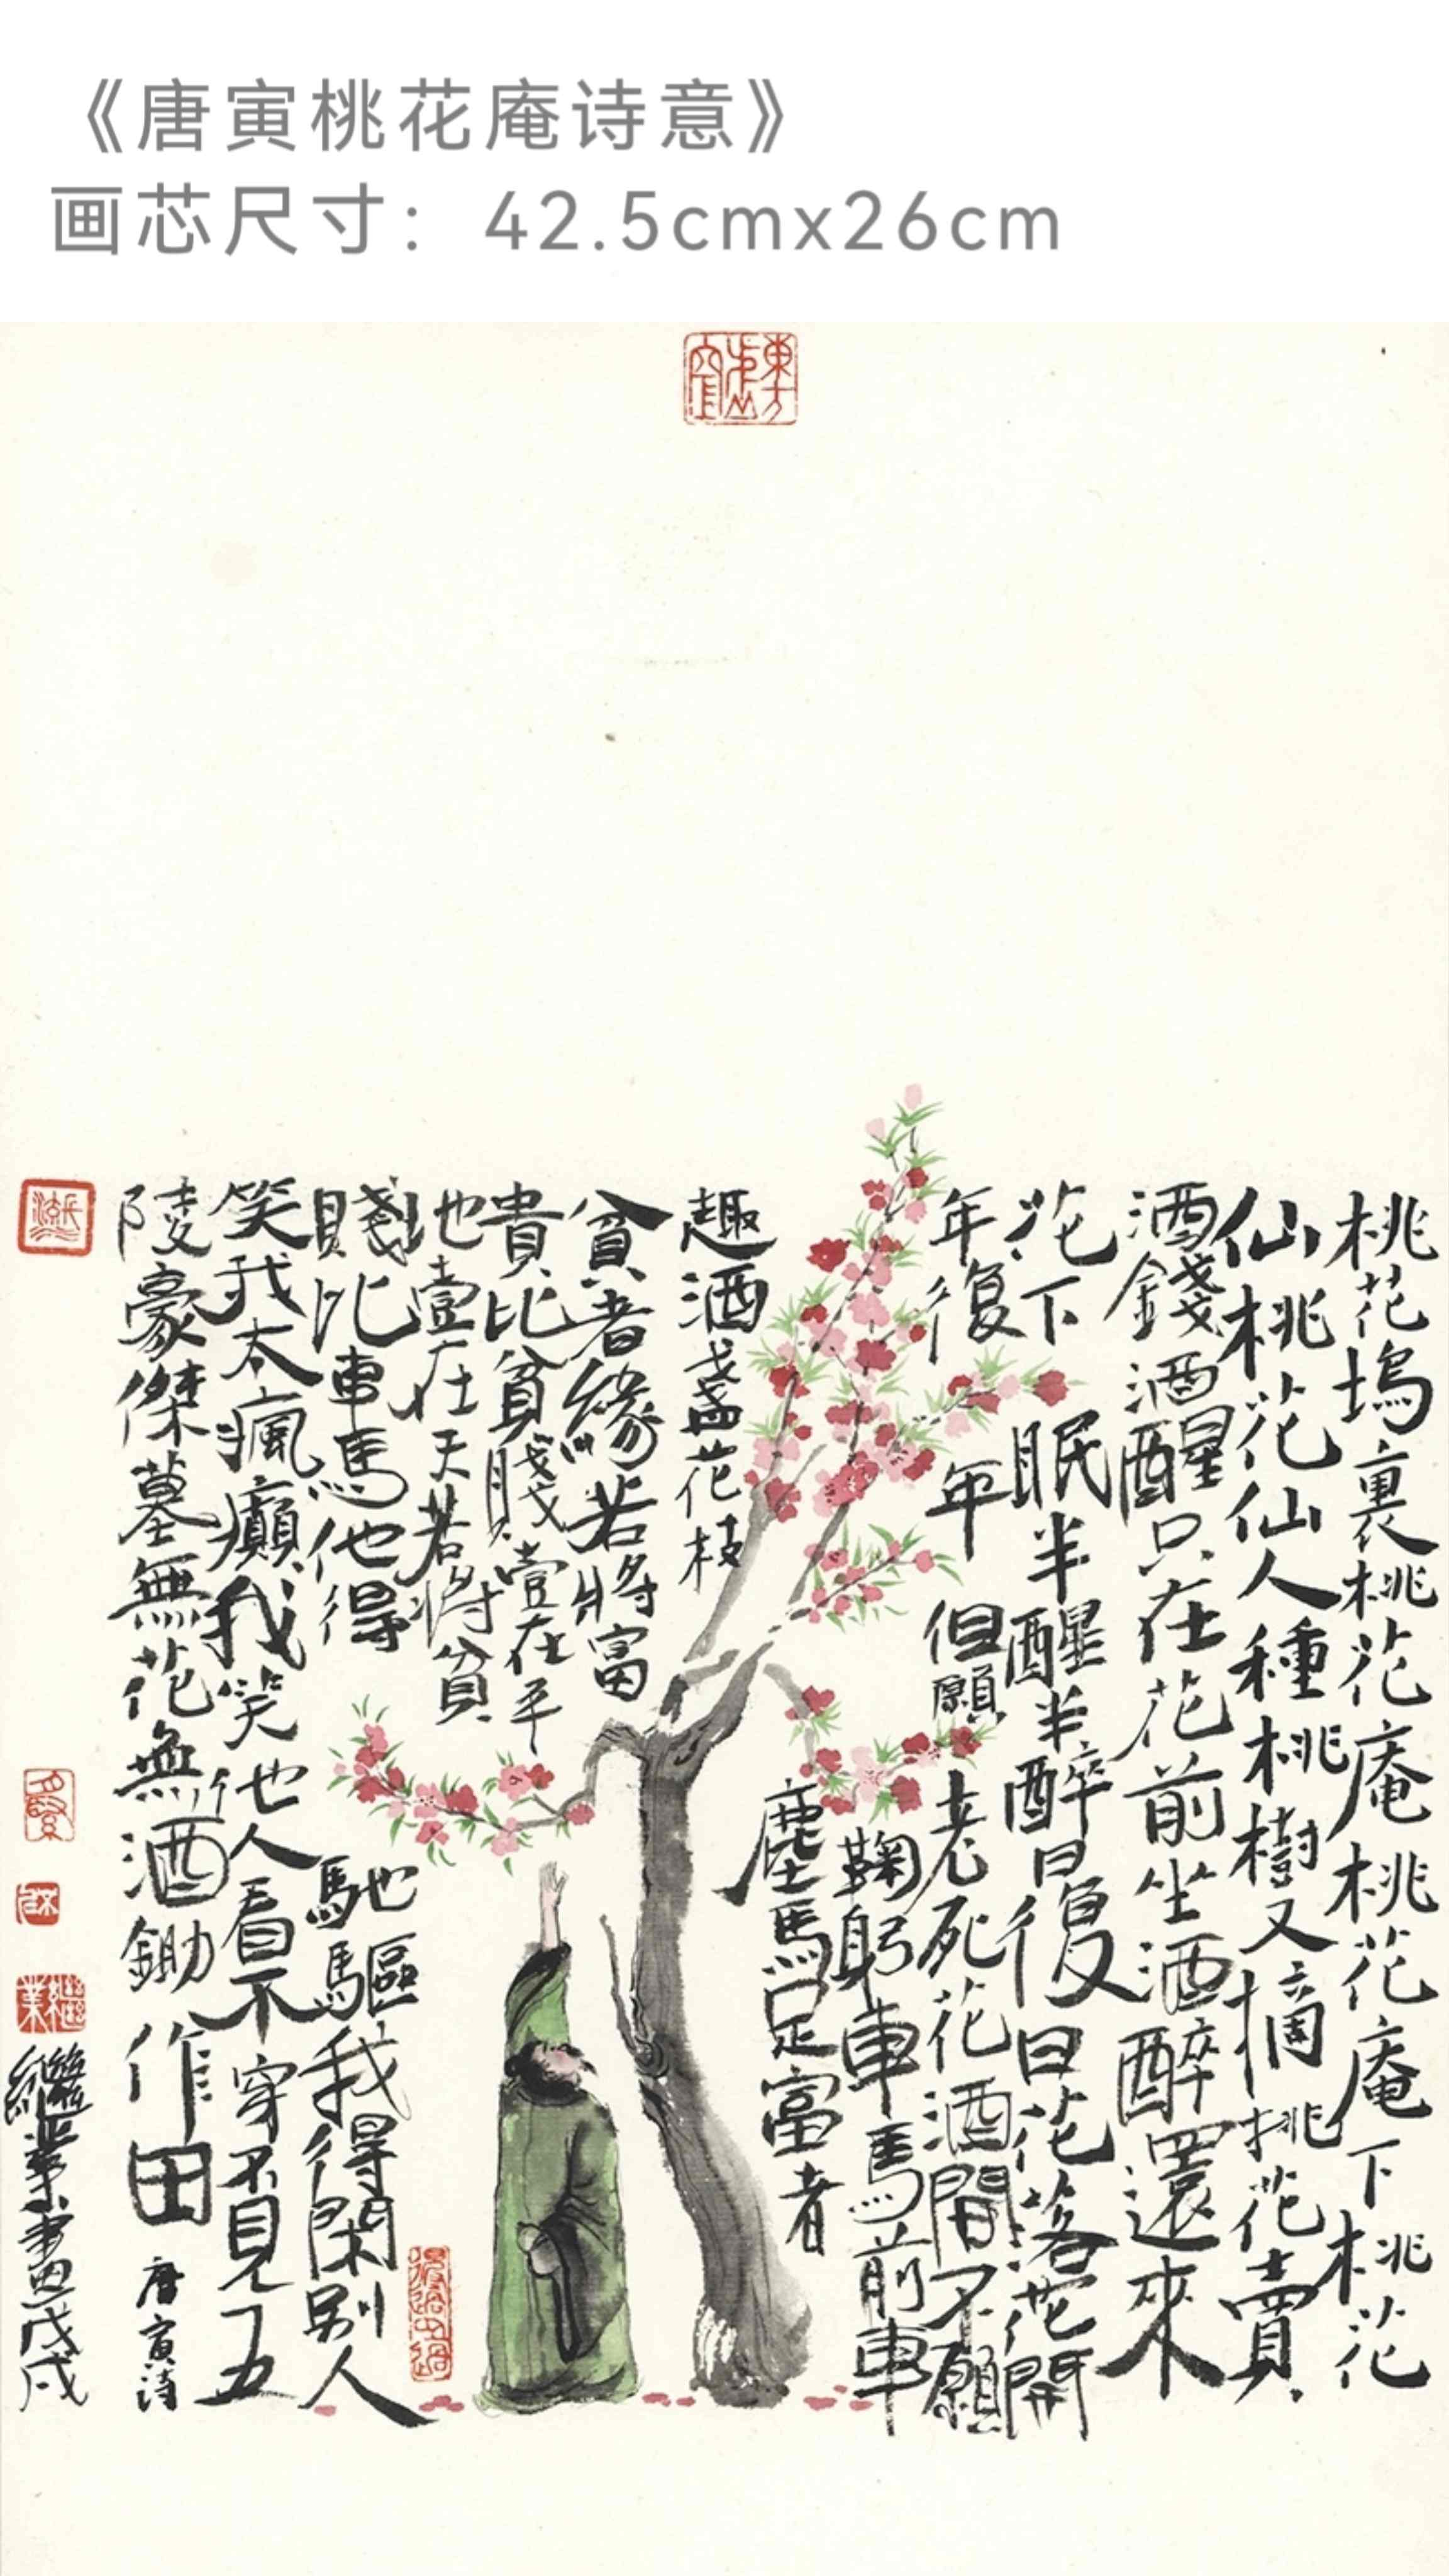 《唐寅桃花庵诗意》
画芯尺寸：42.5cmx26cm
桃花塢裏桃花庵桃花庵下桃花
仙桃花仙人種桃樹又摘桃花賣
酒錢酒醒只在花前坐酒醉還來
花下眠半醒半醉日復日花落花開
年復年但願老死花酒間不願
鞠躬車馬前車
塵馬足富者
趣酒盞花枝
貧者緣若將富
貴比貧賤壹在平
地壹在天若將貧
賤比車馬他得
馳驅我得閑別人
笑我太瘋癲我笑他人看不穿不見五
陵豪傑墓無花無酒鋤作田
唐寅詩
繼業畫戊戌
繼業